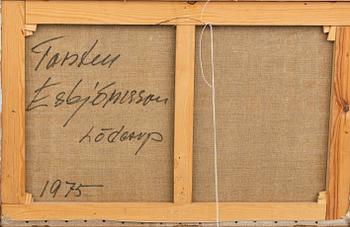 Torsten
Esbjörnsson
Löderup
1975